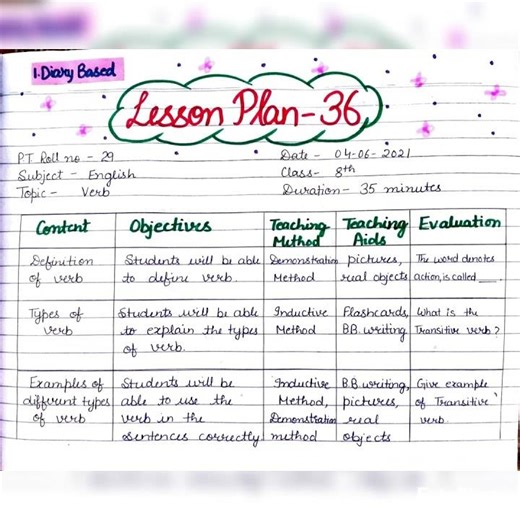 1. Diary Based
Lesson Plan-36
P.T Roll no - 29
Date - 04-06-2021
Subject - English
Class- 8th
Topic - Verb
Duration- 35 minutes
Content
Objectives
Teaching
Method
Teaching
Aids
Evaluation
Definition
of verb
Students will be able
to define verb.
Demonstration
Method
pictures,
real objects
The word denotes
action, is called ___.
Types of
verb
Students will be able
to explain the types
of verb.
Inductive
Method
Flashcards,
B.B. writing
What is the
Transitive verb?
Examples of
different types
of verb
Students will be
able to use the
verb in the
sentences correctly
Inductive
Method,
Demonstration
method
B.B. writing,
pictures,
real
objects
Give example
of Transitive
verb.